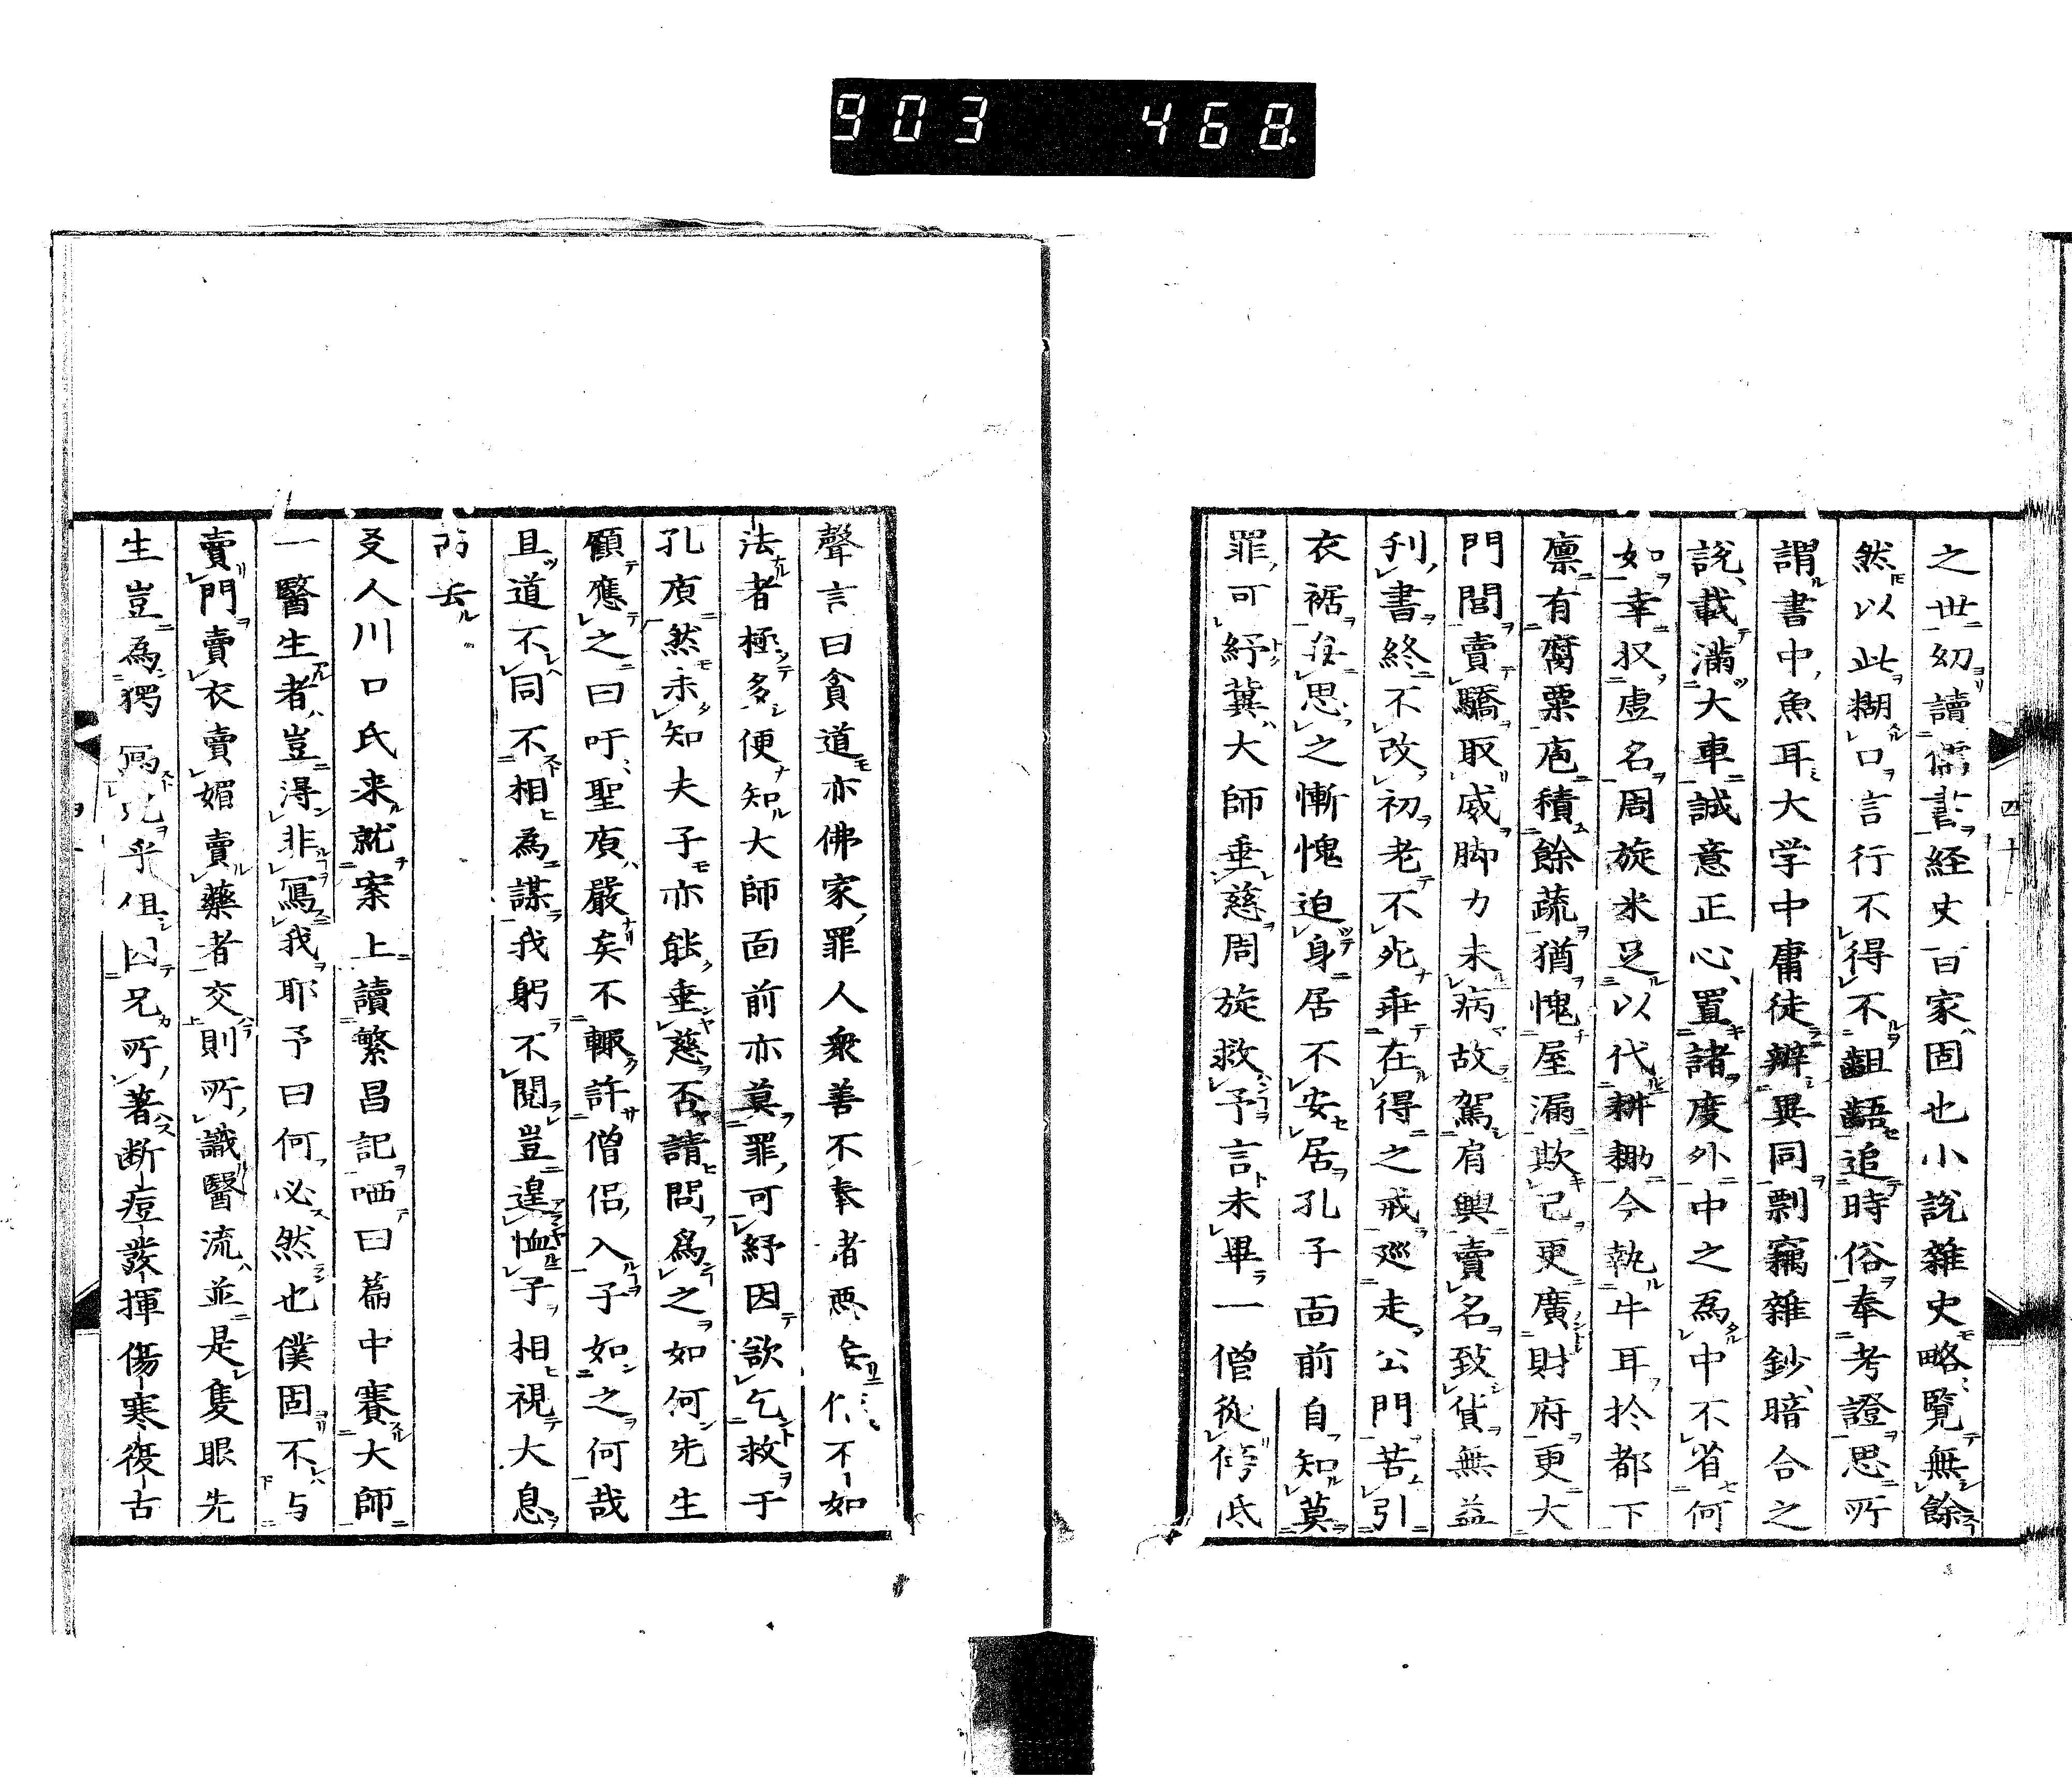 903 468
之世幼讀儒書経史百家固也小説雑史略覧無餘
然以此糊口言行不得不齟齬追時俗奉考證思所
謂書中魚耳大学中庸徒辨異同剽竊雑鈔暗合之
説載満大車誠意正心置諸度外中之爲中不省何
如幸収虚名周旋米足以代耕耡今執牛耳於都下
廪有腐粟庖積餘蔬猶愧屋漏欺己更廣財府更大
門閭賣驕取威脚力未病故駕肩輿賣名致貨無益
刊書終不改初老不死垂在得之戒廵走公門苦引
衣裾在思之慚愧迫身居不安居孔子面前自知莫
罪可紓冀大師垂慈周旋救予言未畢一僧從傍低
聲言曰貪道亦佛家罪人衆善不奉者悪 不如
法者極多便知大師面前亦莫罪可紓因欲乞救于
孔廟然未知夫子亦能垂慈否請問爲之如何先生
顧應之曰吁聖廟嚴矣不輙許僧侶入子如之何哉
且道不同不相爲謀我躬不閲豈遑恤子相視大息
而去
友人川口氏来就案上讀繁昌記哂曰篇中賽大師
一醫生者豈得非寫我耶予曰何必然也僕固不与
賣門賣衣賣媚賣藥者交則所識醫流並是隻眼先
生豈為獨寫兄乎但因兄所著断痘發揮傷寒復古
四十